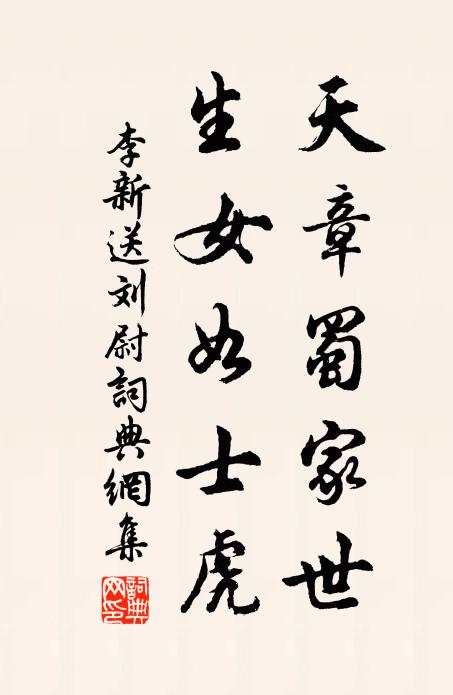 天章蜀家世
生女如士虎
李新送刘尉詞典網集
詞典網印